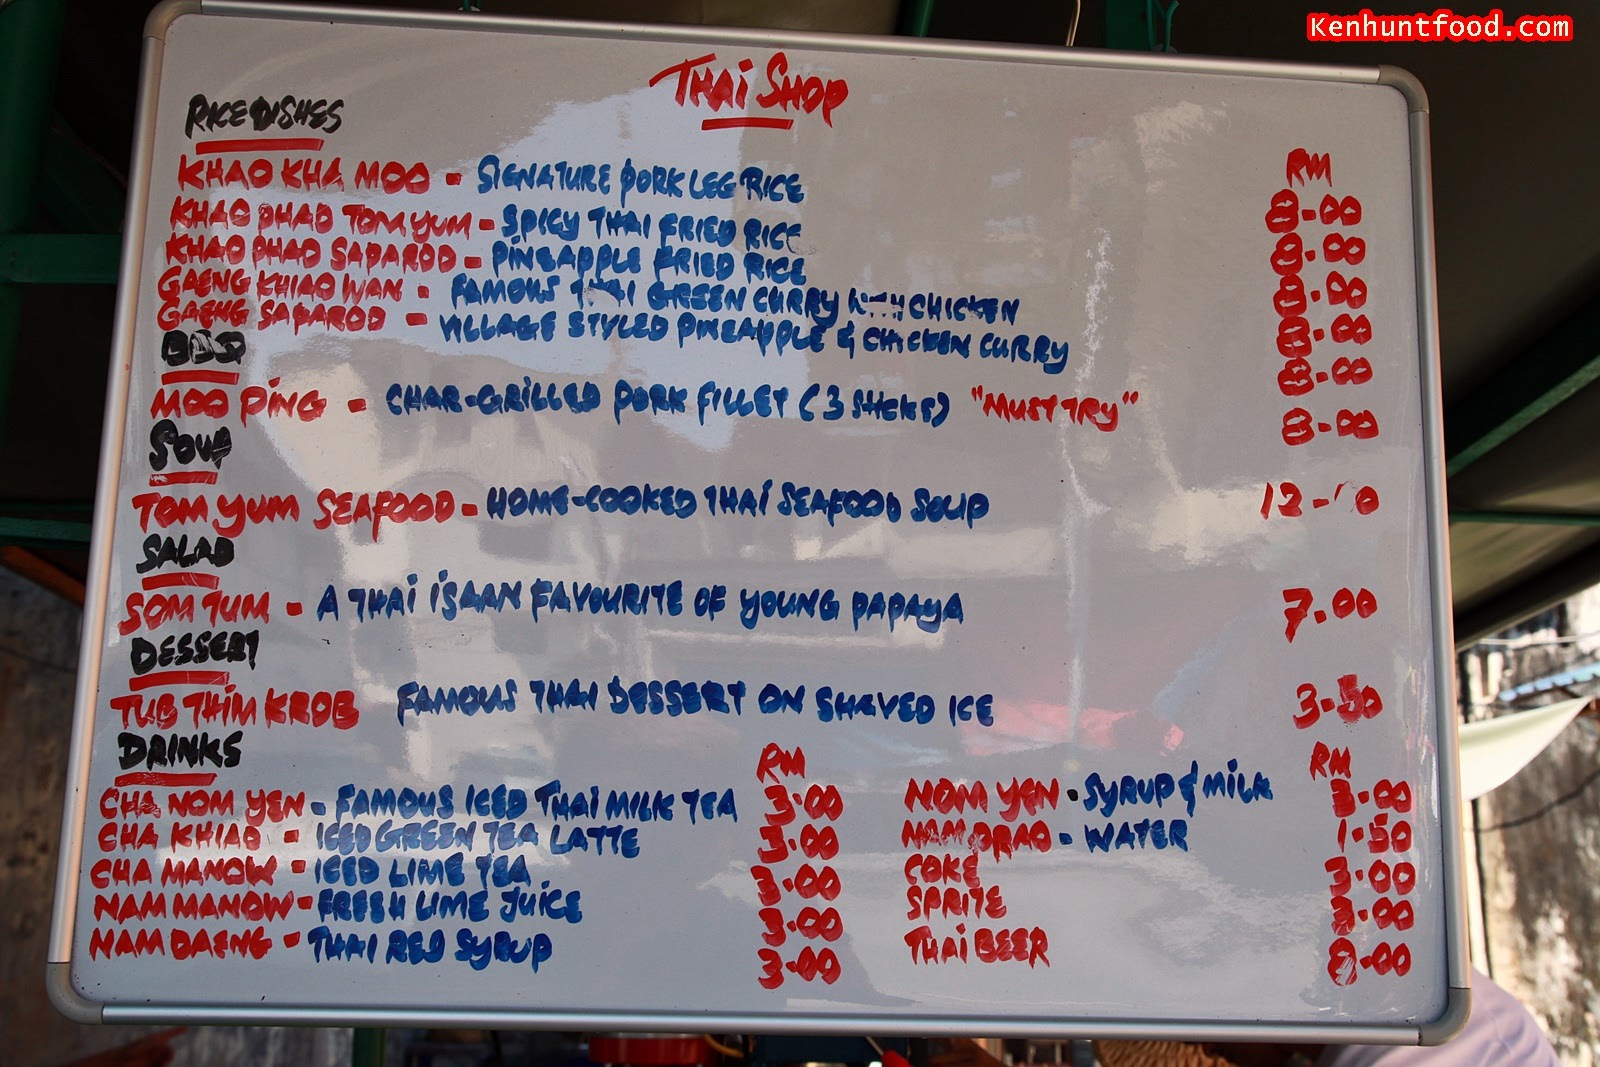 Kenhuntfood.com
THAI SHOP
RICE DISHES
RM
KHAO KHA MOO - SIGNATURE PORK LEG RICE 8-00
KHAO PHAD TOM YUM - SPICY THAI FRIED RICE 8-00
KHAO PHAD SAPAROD - PINEAPPLE FRIED RICE 8-00
GAENG KHIAO WAN - FAMOUS THAI GREEN CURRY WITH CHICKEN 8-00
GAENG SAPAROD - VILLAGE STYLED PINEAPPLE & CHICKEN CURRY 8-00
BBQ
MOO PING - CHAR-GRILLED PORK FILLET (3 STICKS) "MUST TRY" 8-00
SOUP
TOM YUM SEAFOOD - HOME-COOKED THAI SEAFOOD SOUP 12-00
SALAD
SOM TUM - A THAI ISAAN FAVOURITE OF YOUNG PAPAYA 7.00
DESSERT
TUB THIM KROB FAMOUS THAI DESSERT ON SHAVED ICE 3-50
DRINKS
RM RM
CHA NOM YEN - FAMOUS ICED THAI MILK TEA 3-00 NOM YEN - SYRUP & MILK 3-00
CHA KHIAO - ICED GREEN TEA LATTE 3-00 NAM PRAO - WATER 1-50
CHA MANOW - ICED LIME TEA 3-00 COKE 3-00
NAM MANOW - FRESH LIME JUICE 3-00 SPRITE 3-00
NAM DAENG - THAI RED SYRUP 3-00 THAI BEER 8-00